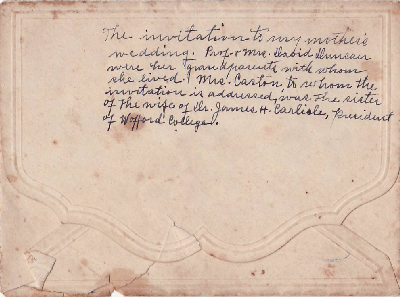 The invitation to my mother's
wedding. Prof. & Mrs. David Duncan
were her grandparents with whom
she lived. Mrs. Carson, to whom the
invitation is addressed, was the sister
of the wife of Dr. James H. Carlisle, President
of Wofford College.